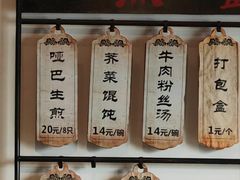 哑巴生煎
20元/8只
荠菜馄饨
14元/碗
牛肉粉丝汤
14元/碗
打包盒
1元/个